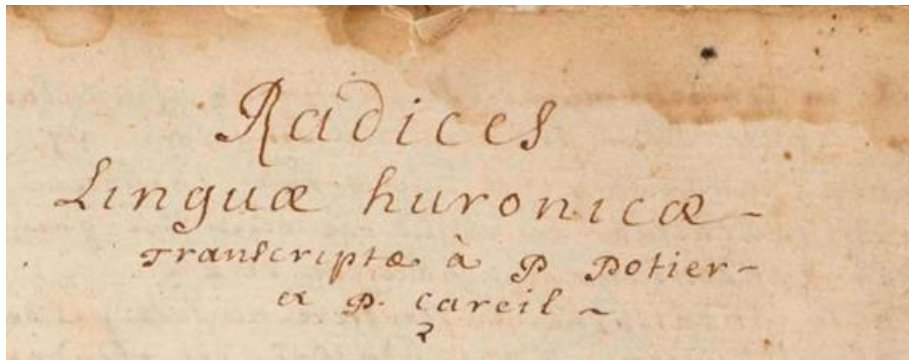 Radices
Linguæ huronicæ -
Transcriptæ à P Potier -
ex P. Careil ~
2